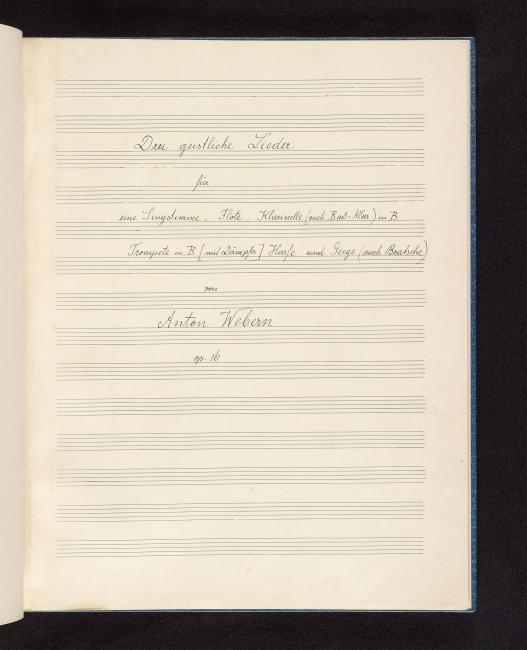 Drei geistliche Lieder
für
eine Singstimme, Flöte, Klarinette (auch Bass-Klar) in B
Trompete in B [mit Dämpfer] Harfe und Geige (auch Bratsche)
von
Anton Webern
op. 16